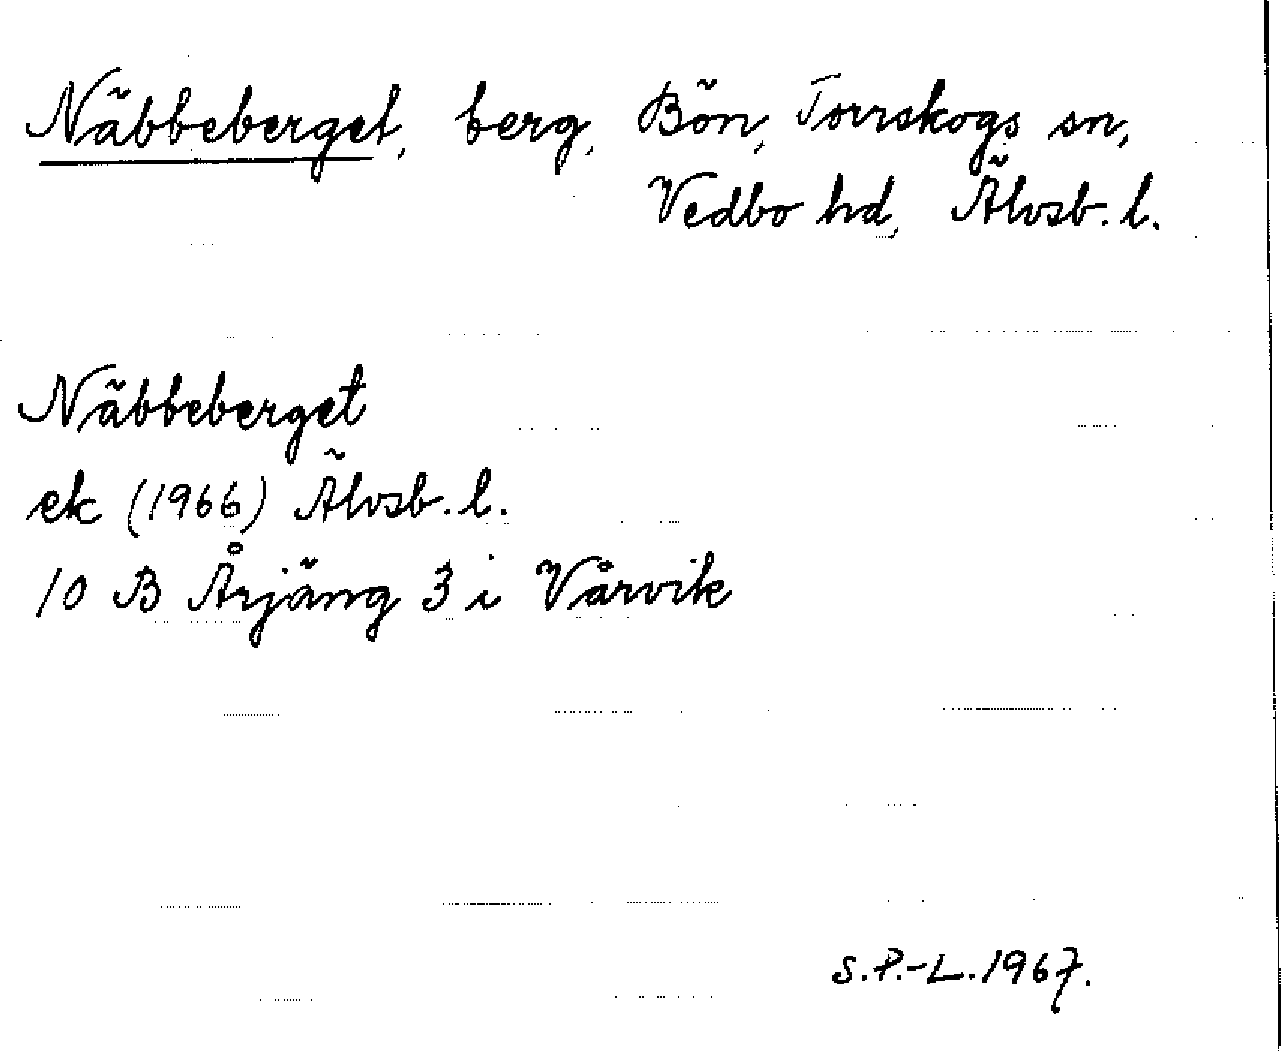 Näbbeberget, berg, Bön, Torrskogs sn,
Vedbo hd, Älvsb. l.
Näbbeberget
ek (1966) Älvsb. l.
10 B Årjäng 3 i Vårvik
S.P.-L. 1967.